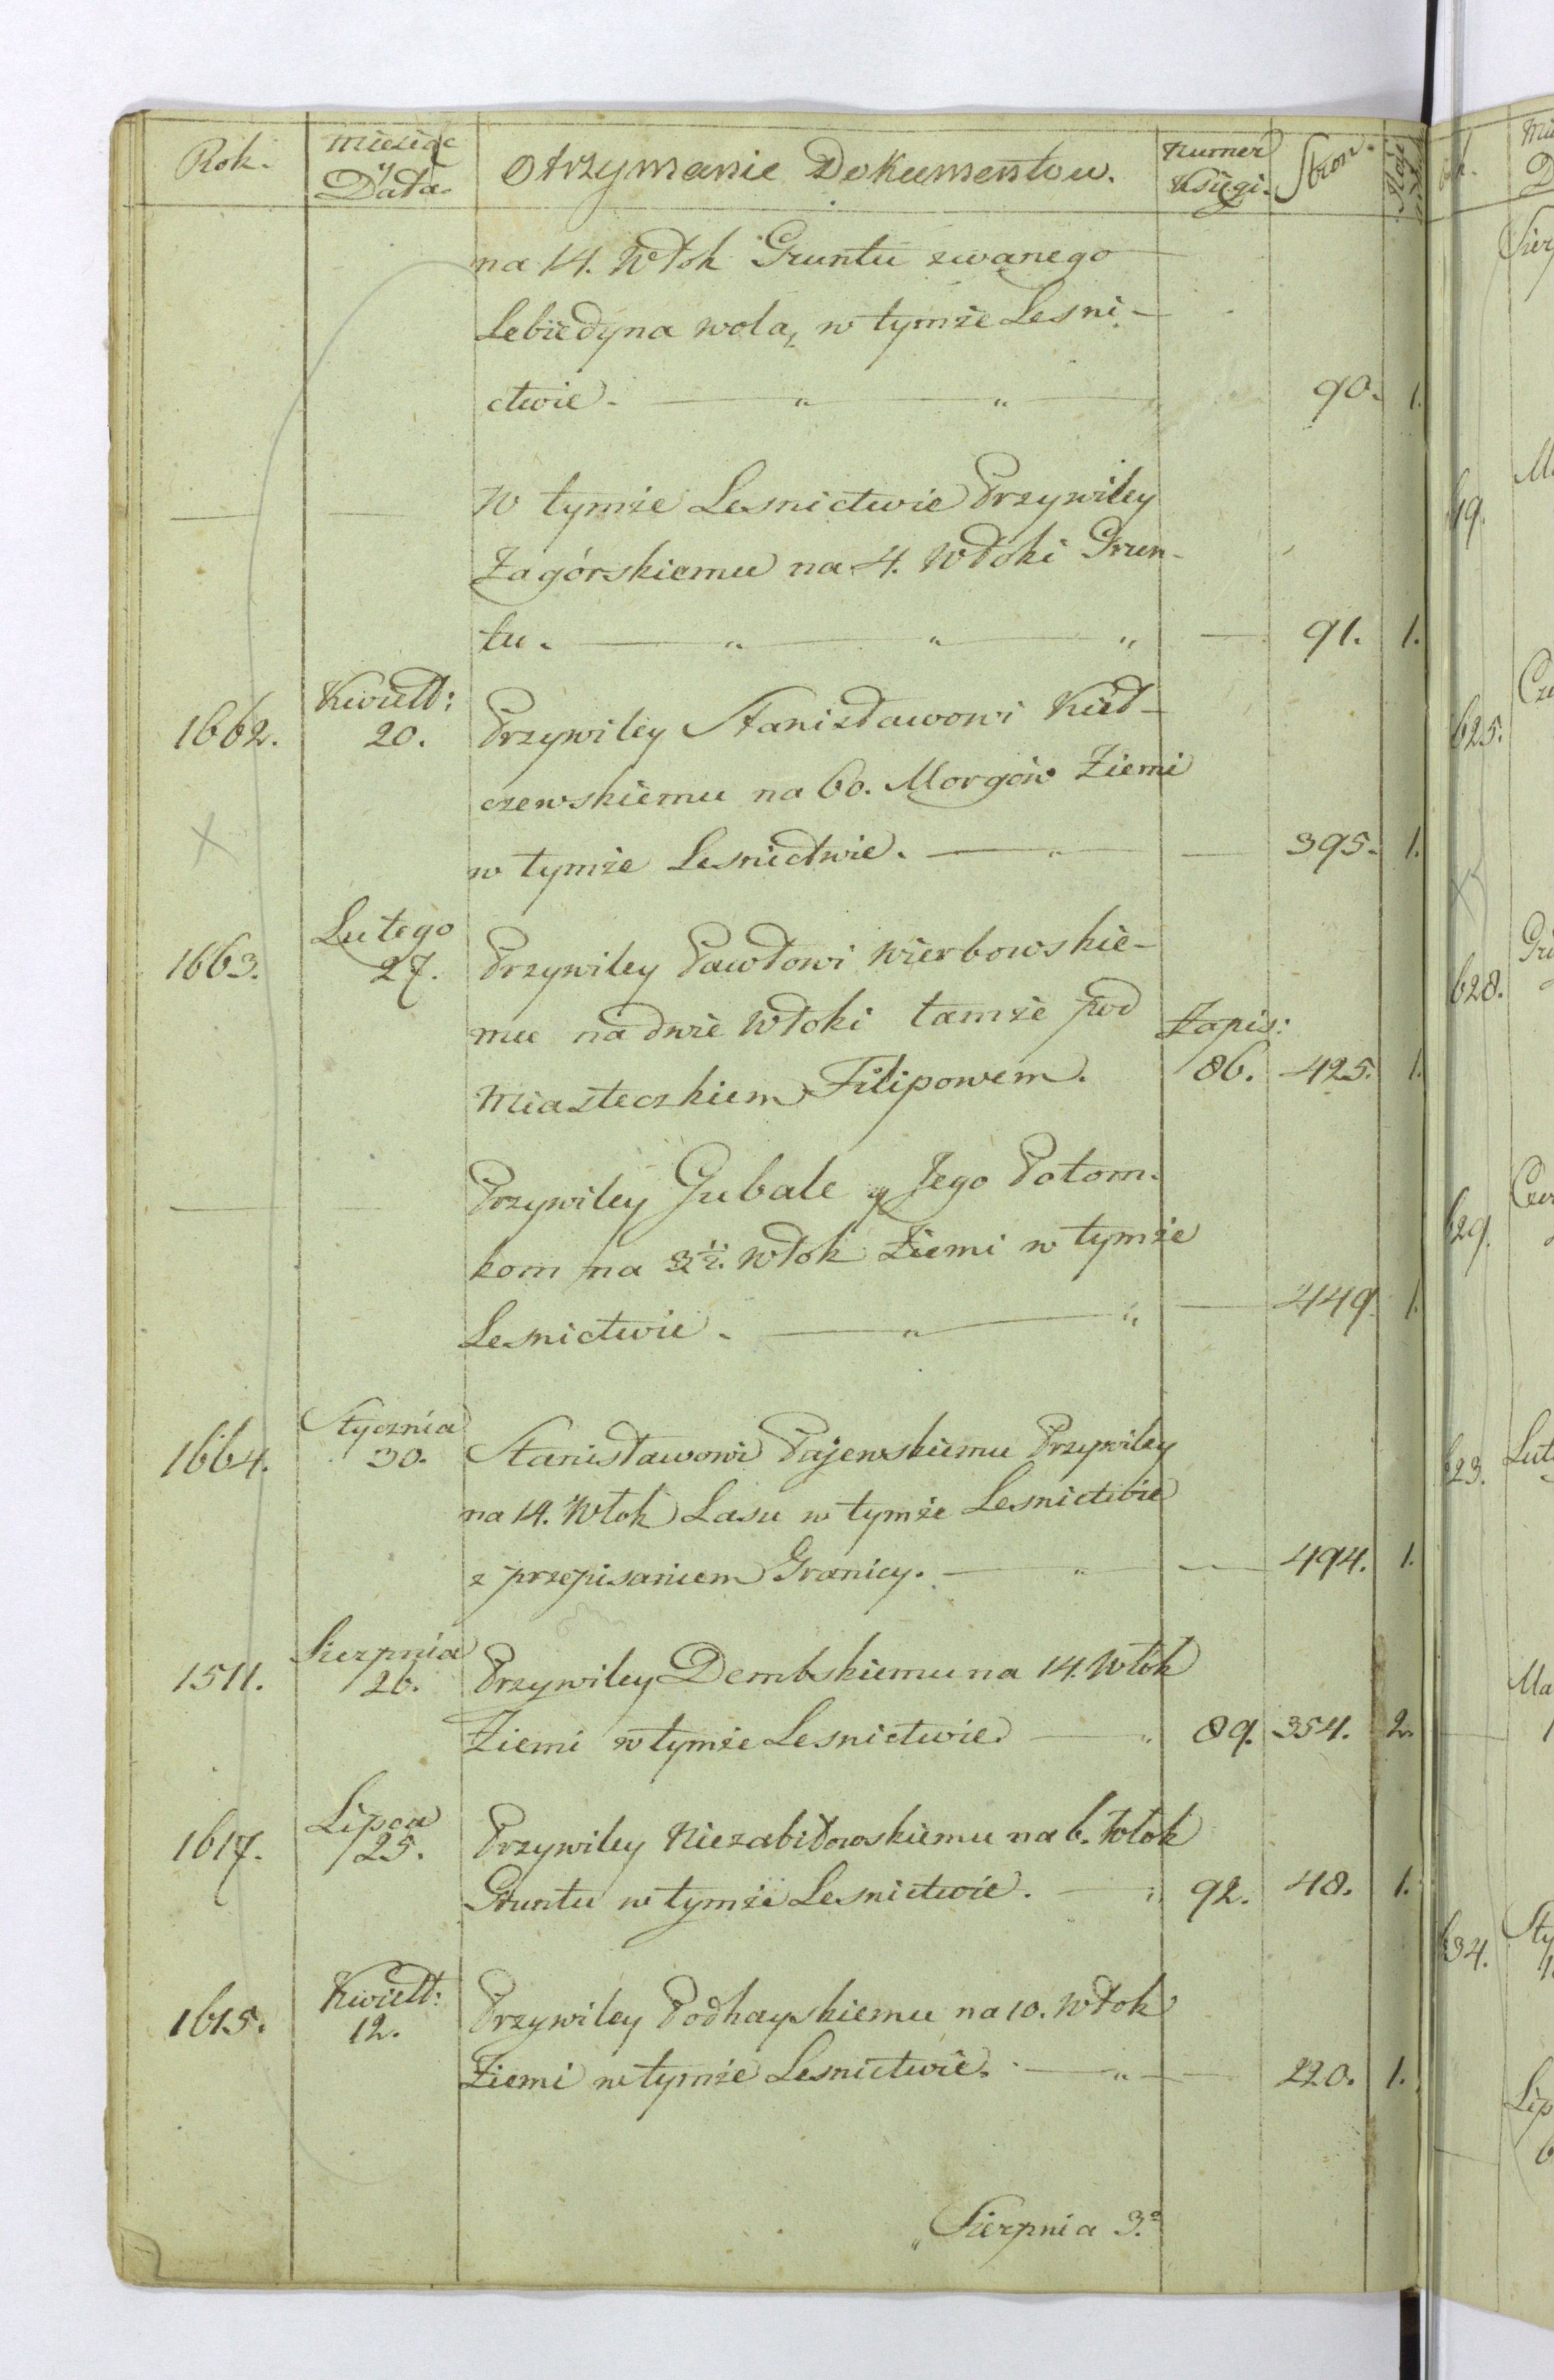 Rok. miesiąc y Data. Otrzymanie Dokumentow. Numer Księgi. Stron.
na 14. Włok Gruntu zwanego
Lebiedyna wola, w tymże Lesni-
ctwie. — " — " — 90. 1.
— — W tymże Lesnictwie Przywiley
Zagórskiemu na 4. Włoki Grun-
tu. — " — " — " — 91. 1.
1662. Kwiett: 20. Przywiley Stanisławowi Kieł-
czewskiemu na 60. Morgów Ziemi
w tymże Lesnictwie. — " — — 395. 1.
1663. Lutego 27. Przywiley Pawłowi Wierbowskie-
mu na dwie Włoki tamże pod Zapis:
Miasteczkiem Filipowem. 86. 425. 1.
— — Przywiley Gubale y Jego Potom-
kom na Włok Ziemi w tymże
Lesnictwie. — " — " — 449. 1.
1664. Stycznia 30. Stanisławowi Pajewskiemu Przywiley
na 14. Włok Lasu w tymże Lesnictwie
z przepisaniem Granicy. — " — 494. 1.
1511. Sierpnia 26. Przywiley Dembskiemu na 14. Włok
Ziemi w tymże Lesnictwie. — " 89. 354. 2.
1617. Lipca 25. Przywiley Niezabitowskiemu na 6. Włok
Gruntu w tymże Lesnictwie. — " 92. 48. 1.
1615. Kwiett: 12. Przywiley Podhayskiemu na 10. Włok
Ziemi w tymże Lesnictwie. — " — 220. 1.
" Sierpnia 3.